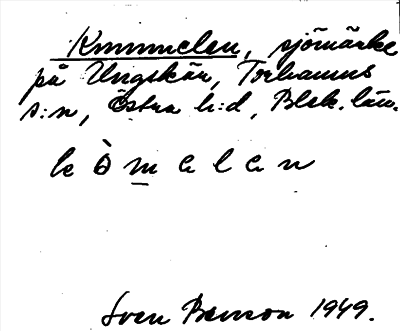 Kummelen, sjömärke
på Ungskär, Torhamns
s:n, Östra h:d, Blek. län.
k ò m e l e n
Sven Benson 1949.